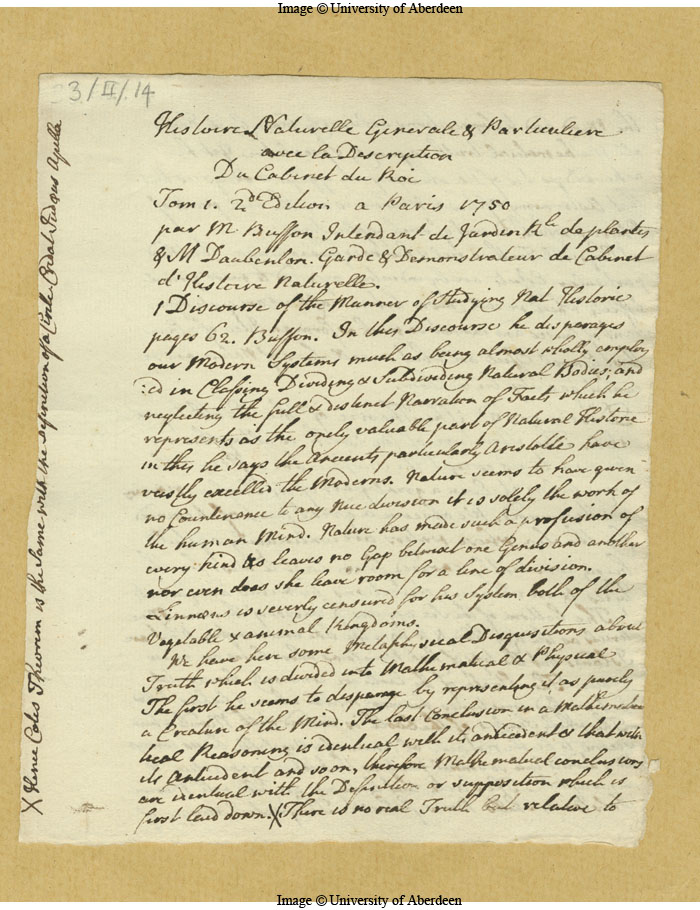 Image © University of Aberdeen
3/II/14
Histoire Naturelle Generale & Particuliere
avec la Description
Du Cabinet du Roi
Tom 1. 2d Edition a Paris 1750
par M. Buffon Intendant de Jardin Rle de plantes
& M Daubenton. Garde & Demonstrateur de Cabinet
d'Histoire Naturelle.
1 Discourse of the Manner of Studying Nat Historie
pages 62. Buffon. In this Discourse he disparages
our Modern Systems much as being almost wholly employ
:ed in Classing Dividing & Subdividing Natural Bodies, and
neglecting the full & distinct Narration of Facts which he
represents as the onely valuable part of Natural Historie
in this he says the Ancients particularly Aristotle have
vastly excelled the Moderns. Nature seems to have given
no Countinance to any Nice division it is solely the work of
the human Mind. Nature has made such a profusion of
every kind as leaves no Gap betwixt one Genus and another
nor even does she leave room for a line of division.
Linnæus is severly censured for his System both of the
Vegetable & animal Kingdoms.
We have here some Metaphysical Disquisitions about
Truth which is divided into Mathematical & Physical
The first he seems to disparage by representing it as purely
a Creature of the Mind. The last Conclusion in a Mathema
tical Reasoning is identical with its antecedent & that with
its Antecedent and so on, therefore Mathematical conclusions
are identical with the Definition or supposition which is
first laid down. X There is no real Truth but relative to
X Hence Cotes Theorem is the Same with the Definition of a Circle Credat Judæus Apella
Image © University of Aberdeen